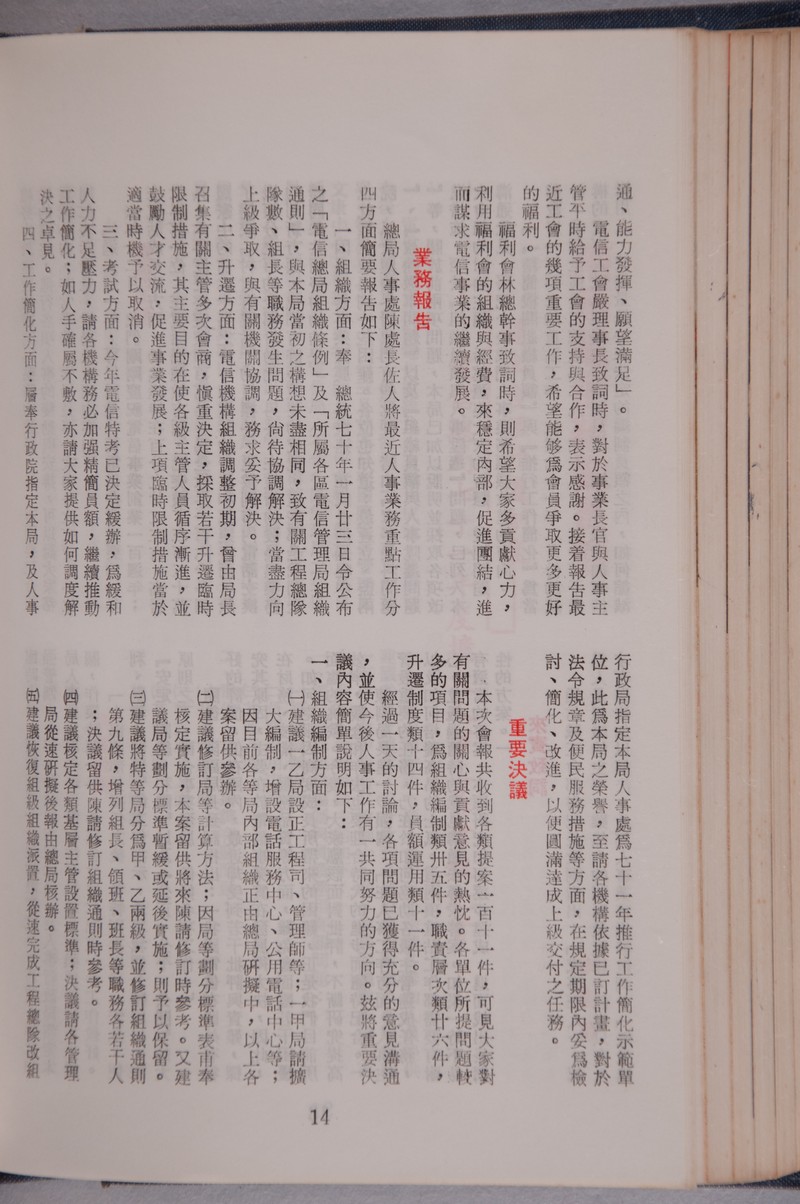 通、能力發揮、願望滿足」。
電信工會嚴理事長致詞時，對於事業長官與人事主
管平時給予工會的支持與合作，表示感謝。接着報告最
近工會的幾項重要工作，希望能够爲會員爭取更多更好
的福利。
福利會林總幹事致詞時，則希望大家多貢獻心力，
利用福利會的組織與經費，來穩定內部，促進團結，進
而謀求電信事業的繼續發展。
業務報告
總局人事處陳處長佐人將最近人事業務重點工作分
四方面簡要報告如下：
一、組織方面：奉　總統七十年一月廿三日令公布
之「電信總局組織條例」及「所屬各區電信管理局組織
通則」，與本局當初之構想未盡相同，致有關工程總隊
隊數、組長等職務發生問題，尚待協調解決；當盡力向
上級爭取，與有關機關協調，務求妥予解決。
二、升遷方面：電信機構組織調整初期，曾由局長
召集有關主管多次會商，愼重決定，採取若干升遷臨時
限制措施，其主要目的在使各級主管人員循序漸進，並
鼓勵人才交流，促進事業發展；上項臨時限制措施當於
適當時機予以取消。
三、考試方面：今年電信特考已決定緩辦，爲緩和
人力不足壓力，請各機構務必加强精簡員額，繼續推動
工作簡化；如人手確屬不敷，亦請大家提供如何調度解
決之卓見。
四、工作簡化方面：層奉行政院指定本局，及人事
行政局指定本局人事處爲七十一年推行工作簡化示範單
位，此爲本局之榮譽，至請各機構依據已訂計畫，對於
法令規章及便民服務措施等方面，在規定期限內妥爲檢
討、簡化、改進，以便圓滿達成上級交付之任務。
重要決議
本次會報共收到各類提案一百十一件，可見大家對
有關問題的關心與貢獻意見的熱忱。各單位所提問題較
多的項目，爲組織編制類卅五件，職責層次類廿六件，
升遷制度類十四件，員額運用類十一件。
經過一天的討論，各項問題已獲得充分的意見溝通
，並使今後人事工作有一共同努力的方向。茲將重要決
議內容簡單說明如下：
一、組織編制方面：
㈠建議一乙局設正工程司、管理師等；一甲局請擴
大編制，增設電話服務中心、公用電話中心等；
因目前各等局內部組織正由總局研擬中，以上各
案留供參辦。
㈡建議修訂局等計算方法；因局等劃分標準表甫奉
核定實施，本案留供將來陳請修訂時參考。又建
議局等劃分標準暫緩或延後實施；則予以保留。
㈢建議將特等局分爲甲、乙兩級，並修訂組織通則
第九條，增列組長、領班、班長等職務各若干人
；決議留供陳請修訂組織通則時參考。
㈣建議核定各類基層主管設置標準；決議請各管理
局從速研擬後報由總局核辦。
㈤建議恢復組級組織派置，從速完成工程總隊改組
14